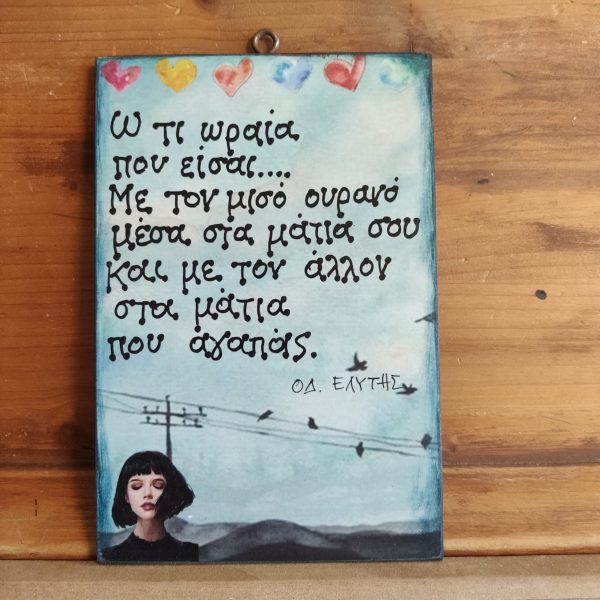 Ω τι ωραία
που είσαι....
Με τον μισό ουρανό
μέσα στα μάτια σου
και με τον άλλον
στα μάτια
που αγαπάς.
ΟΔ. ΕΛΥΤΗΣ